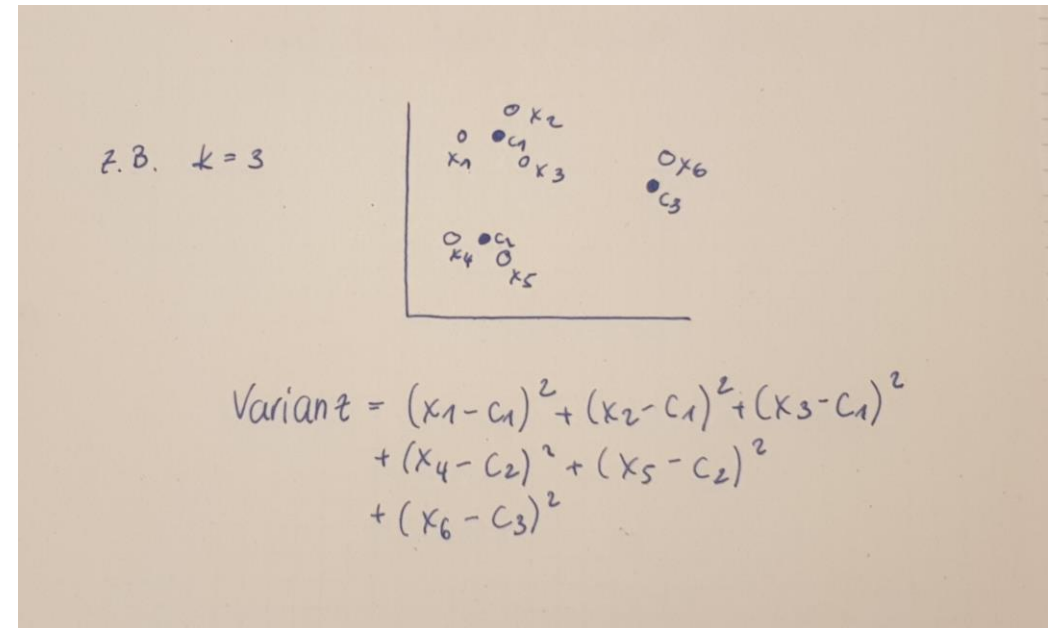 z.B. k = 3
x2
c1
x1
x3
x6
c3
c2
x4
x5
Varianz = (x1 - c1)² + (x2 - c1)² + (x3 - c1)²
+ (x4 - c2)² + (x5 - c2)²
+ (x6 - c3)²